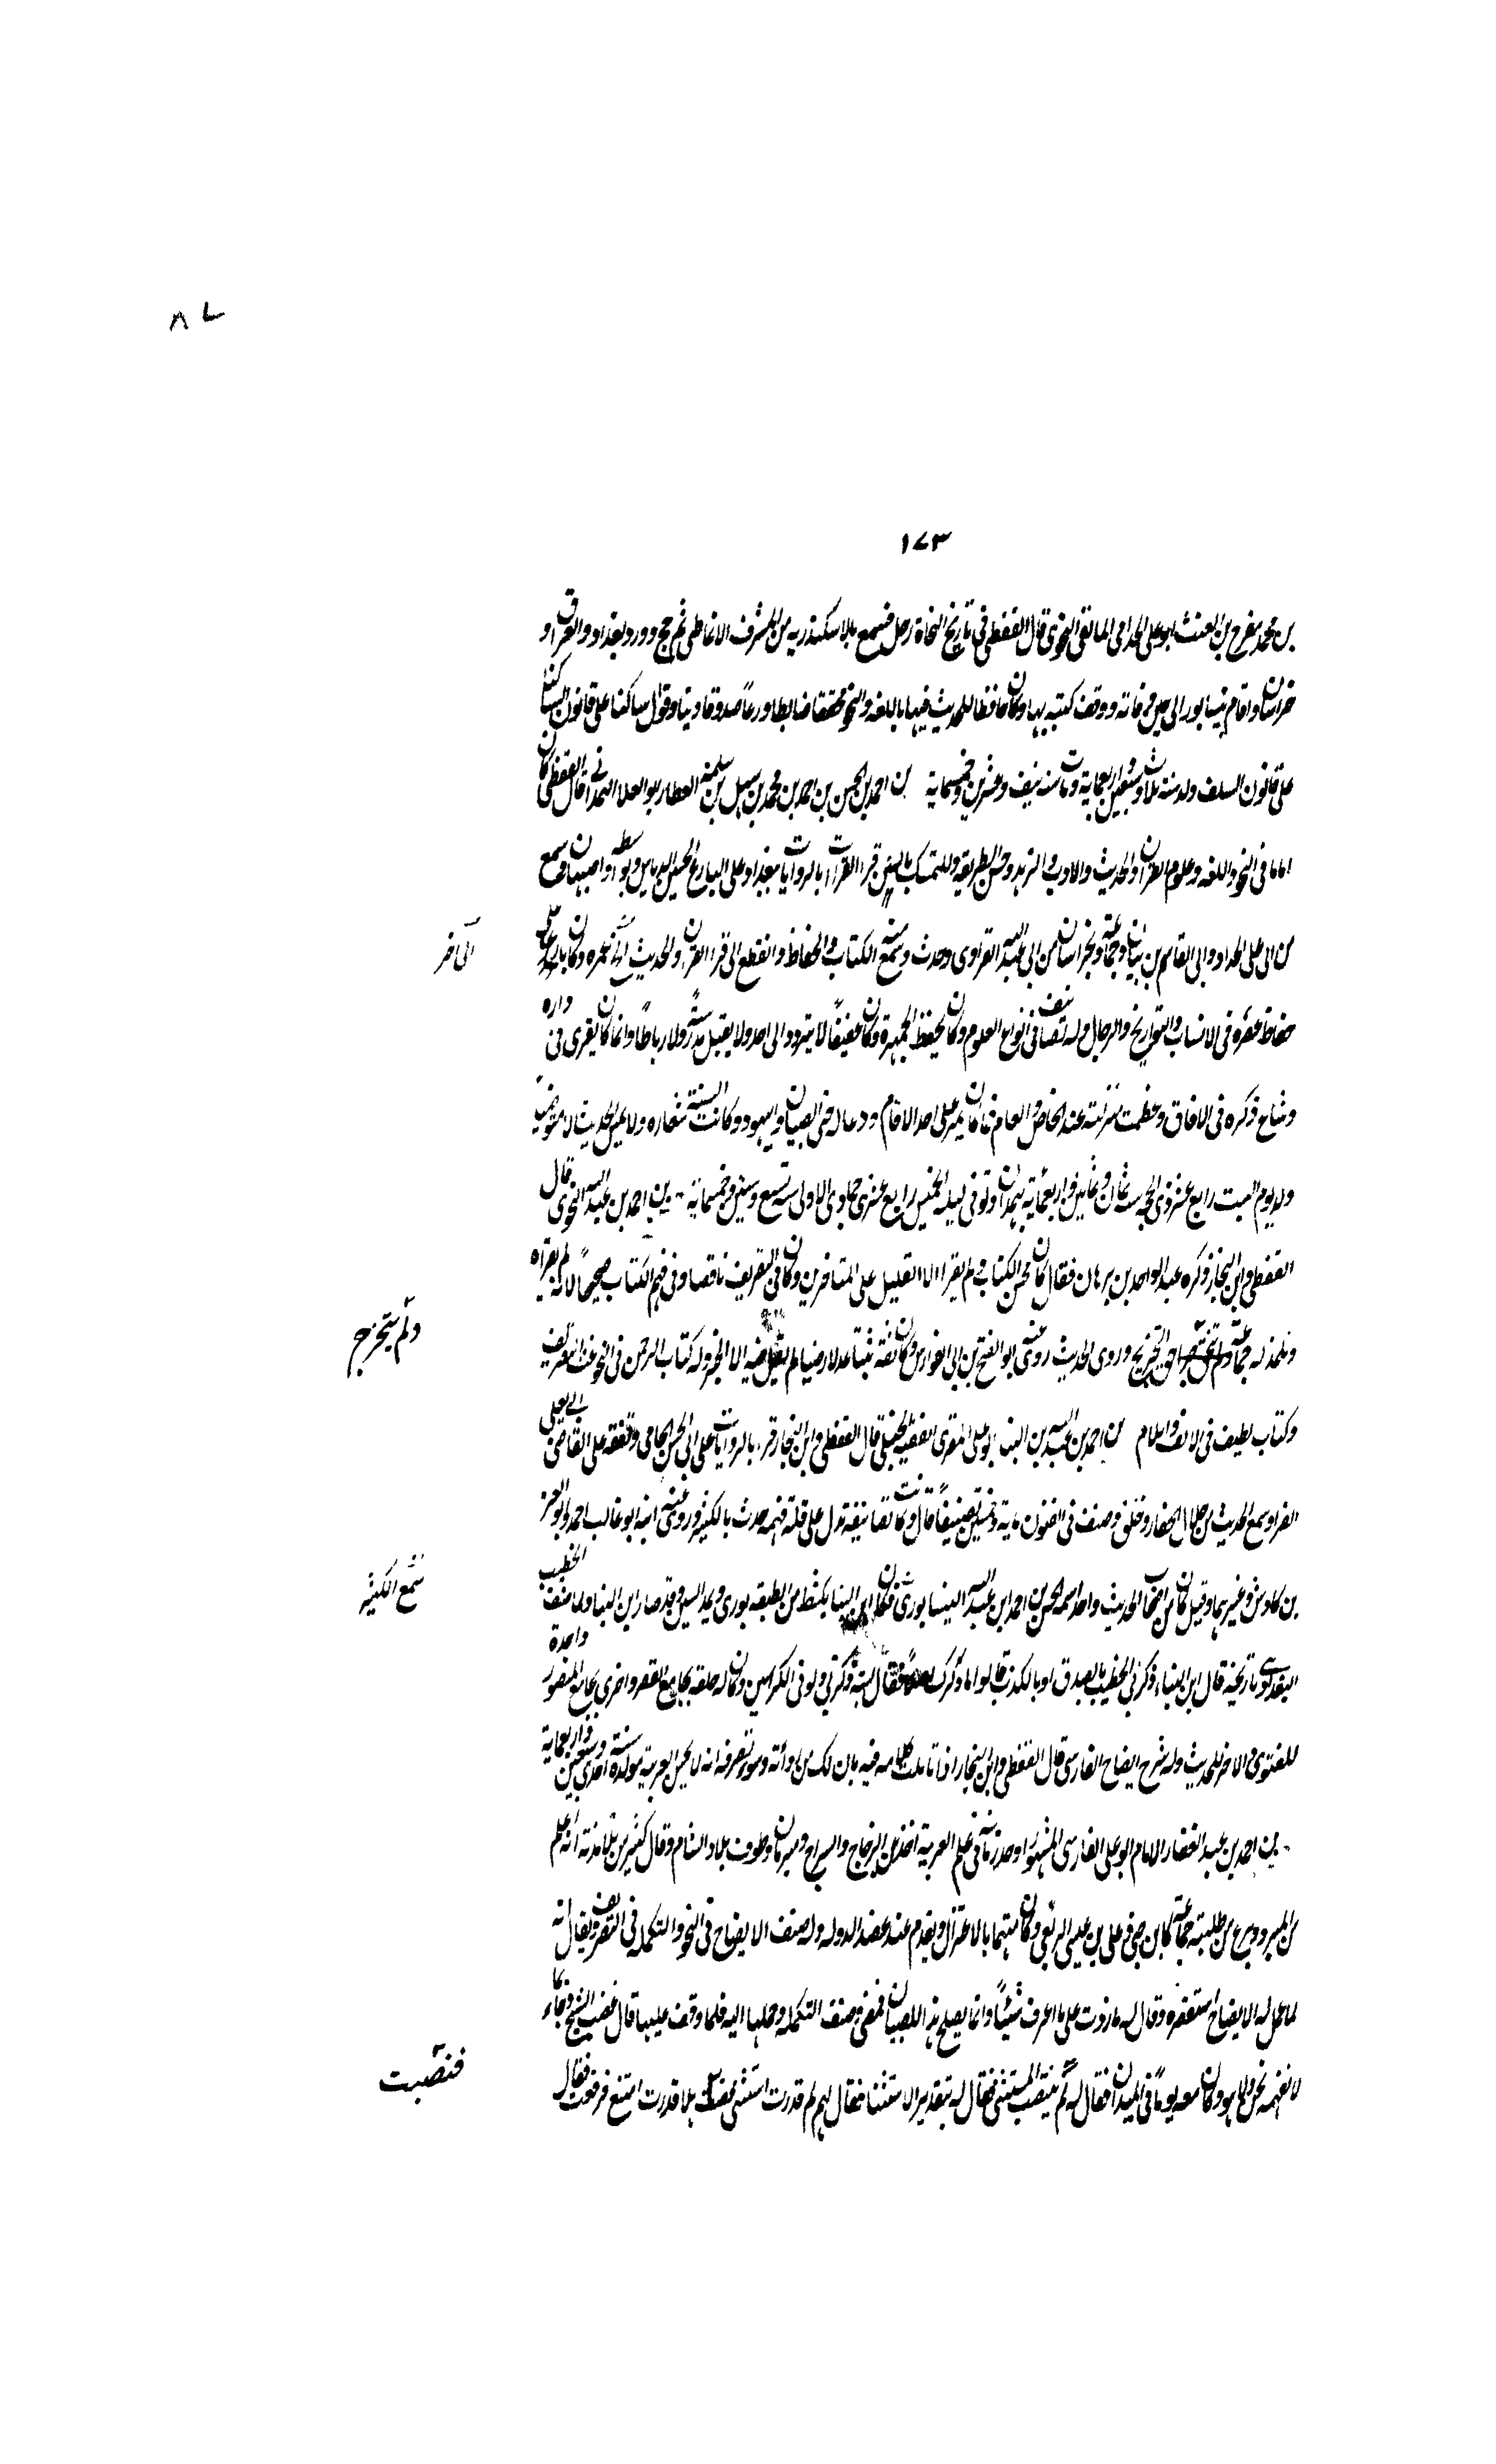 ٨٧
١٧٣
بن محمد بن مفرج بن الغيث ابو على الجذامى المالقى النحوى قال القفطى فى تاريخ النحاة رحل فسمع بالاسكندريه من المشرف الانماطى ثم حج وورد بغداد والعراق و
خراسان واقام بنيسابور الى حين وفاته ووقف كتبه بها وكان حافظا للحديث قيما باللغه والنحو محققا ضابطا ورعا صدوقا دينا وقورا ساكنا على قانون
على قانون السلف ولد سنة ثلاث وسبعين واربعماية ومات سنة نيف وعشرين وخمسماية بن احمد بن الحسن بن احمد بن محمد بن سهل بن سلمة العطار ابو العلا الهمدانى قال القفطى كان
اماما فى النحو واللغه وعلوم القران والحديث والادب والزهد وحسن الطريقه والتمسك بالسنن قرا القرات بالروايات ببغداد على البارع الحسين الدباس وبواسطه واصبهان وسمع
من ابى على الحداد وابى القاسم بن بيان وجماعة وبخراسان من ابى عبد الله الفراوى وحدث وسمع منه الكتاب فى الحفاظ وانقطع الى قرا القران والحديث الى آخر عمره وكان بارعا على
حفاظ عصره فى الانساب والتواريخ والرجال وله تصانيف فى انواع العلوم وكان يحفظ الجمهرة وكان عفيفا لا يتردد الى احد ولا يقبل مدرسة ولا رباطا وانما كان يقرى فى داره
وشاع ذكره فى الافاق وعظمت منزلته عند الخاص والعام فما كان يمر على احد الا قام ودعا له حتى الصبيان واليهود وكانت السنة شعاره ولا يمس الحديث الا متوضيا
ولد يوم السبت رابع عشر ذى الحجه سنة ثمان وثمانين واربعمائة بهمدان وتوفى ليلة الخميس رابع عشرى جمادى الاولى سنة تسع وستين وخمسمائة بن احمد بن عبد الله النحوى قال
القفطى وابن النجار ذكره عبد الواحد بن برهان فقال كان يحسن الكتاب ولم يقرا الا القليل على المتاخرين وكان فى التصريف ناقصا وفى فهم الكتاب صحيحا لانه لم يقراه
وتلمذ له جماعة ولم يتخرج حق التخريج وروى الحديث روى عنه ابو الفتح بن ابى الفوارس وكان ثقة ثبتا عدلا رضيا لم يقل فيه الا الخير وله كتاب الترجمن فى النحو
وكتاب لطيف فى الالف واللام بن احمد بن عبد الله بن البنا ابو على المقرى الفقيه الحنبلى قال القفطى وابن النجار قرا بالروايات على ابى الحسن الحمامى وتفقه على القاضى ابى يعلى
الفرا وسمع الحديث من هلال الحفار وخلق وصنف فى الفنون ماية وخمسين تصنيفا قال وكانت تصانيفه تدل على قلة فهمه حدث بالكثير وروى عنه ابنه ابو غالب احمد وابو العز
بن كادش وغيرهما وقيل كان من اصحاب الحديث واحد اسمه الحسن بن احمد ابن عبد الله النيسابورى فكان ابن البنا يكشط من الطبقه بورى ويمد السين وقد صار ابن البنا ولما صنف الخطيب
تاريخه قال ابن البناء ذكرنى الخطيب بالصدق او بالكذب قالوا ما ذكرك اصلا فقال ليته ذكرنى ولو فى الكذابين وكان له حلقه بجامع القصر واخرى بجامع المنصور واحدة
للفتوى والاخر للحديث وله شرح ايضاح الفارسى قال القفطى وابن النجار اذا تاملت كلامه فيه بان لك من رداءته وسوء تصرفه انه لا يحسن العربية مولده سنة احدى وسبعين واربعماية
بن احمد بن عبد الغفار الامام ابو على الفارسى المشهور اوحد زمانه فى علم العربية اخذ عن الزجاج والسراج ومبرمان وطوف بلاد الشام وقال كثير من تلامذته انه اعلم
من المبرد وبرع من طلبته جماعة كابن جنى وعلى بن عيسى الربعى وكان متهما بالاعتزال وتقدم عند عضد الدوله وله صنف الايضاح فى النحو والتكمله فى التصريف ويقال انه
لما عمل له الايضاح استقصره وقال له ما زدت على ما اعرف شيئا وانما يصلح هذا للصبيان فمضى وصنف التكمله وحملها اليه فلما وقف عليها قال غضب الشيخ وجاء بما
لا نفهمه نحن ولا هو وكان معه يوما فى الميدان فقال له لم ينتصب المستثنى فقال له بتقدير الاستثنا فقال لم قدرت استثنى فنصبت هلا قدرت امتنع فرفعت فقال
الى آخر
ولم يتخرج
سمع الكثير
فنصبت